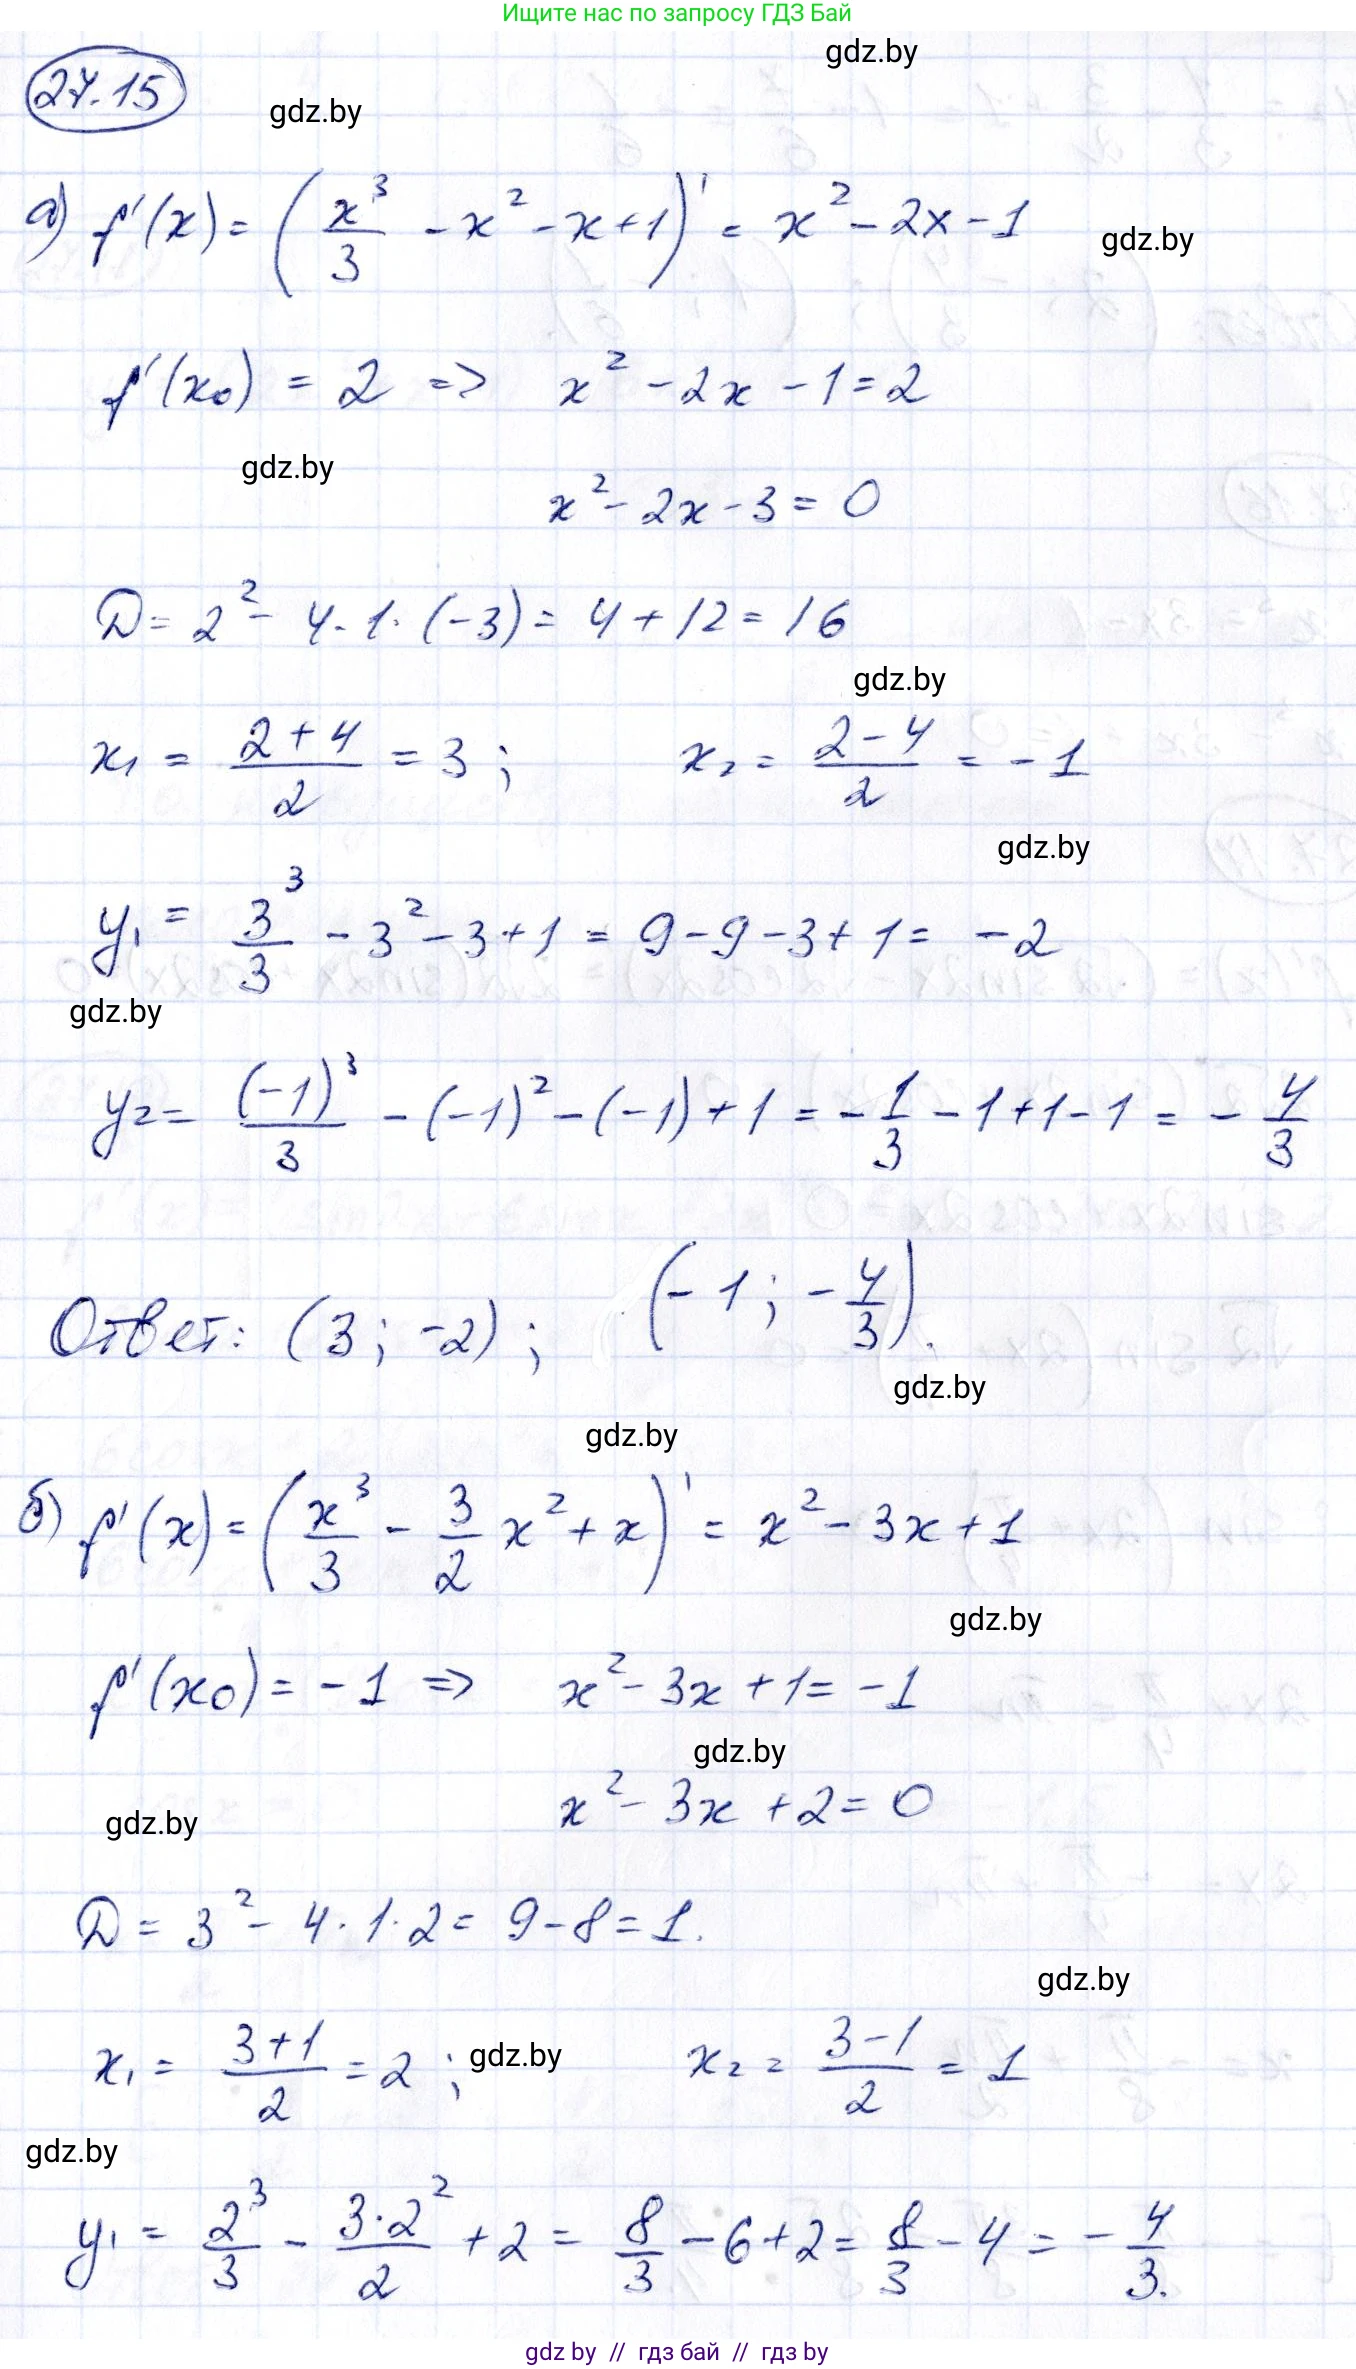 Ищите нас по запросу ГДЗ Бай
gdz.by
27.15
gdz.by
а) f'(x) = (x³/3 - x² - x + 1)' = x² - 2x - 1
gdz.by
f'(x₀) = 2 => x² - 2x - 1 = 2
gdz.by
x² - 2x - 3 = 0
D = 2² - 4·1·(-3) = 4 + 12 = 16
gdz.by
x₁ = (2+4)/2 = 3 ; x₂ = (2-4)/2 = -1
gdz.by
y₁ = 3³/3 - 3² - 3 + 1 = 9 - 9 - 3 + 1 = -2
gdz.by
y₂ = (-1)³/3 - (-1)² - (-1) + 1 = -1/3 - 1 + 1 - 1 = -4/3
Ответ: (3 ; -2) ; (-1 ; -4/3).
gdz.by
gdz.by
б) f'(x) = (x³/3 - 3/2 x² + x)' = x² - 3x + 1
gdz.by
f'(x₀) = -1 => x² - 3x + 1 = -1
gdz.by
x² - 3x + 2 = 0
gdz.by
D = 3² - 4·1·2 = 9 - 8 = 1.
gdz.by
x₁ = (3+1)/2 = 2 ; gdz.by x₂ = (3-1)/2 = 1
gdz.by
y₁ = 2³/3 - 3·2²/2 + 2 = 8/3 - 6 + 2 = 8/3 - 4 = -4/3.
gdz.by // гдз бай // гдз by